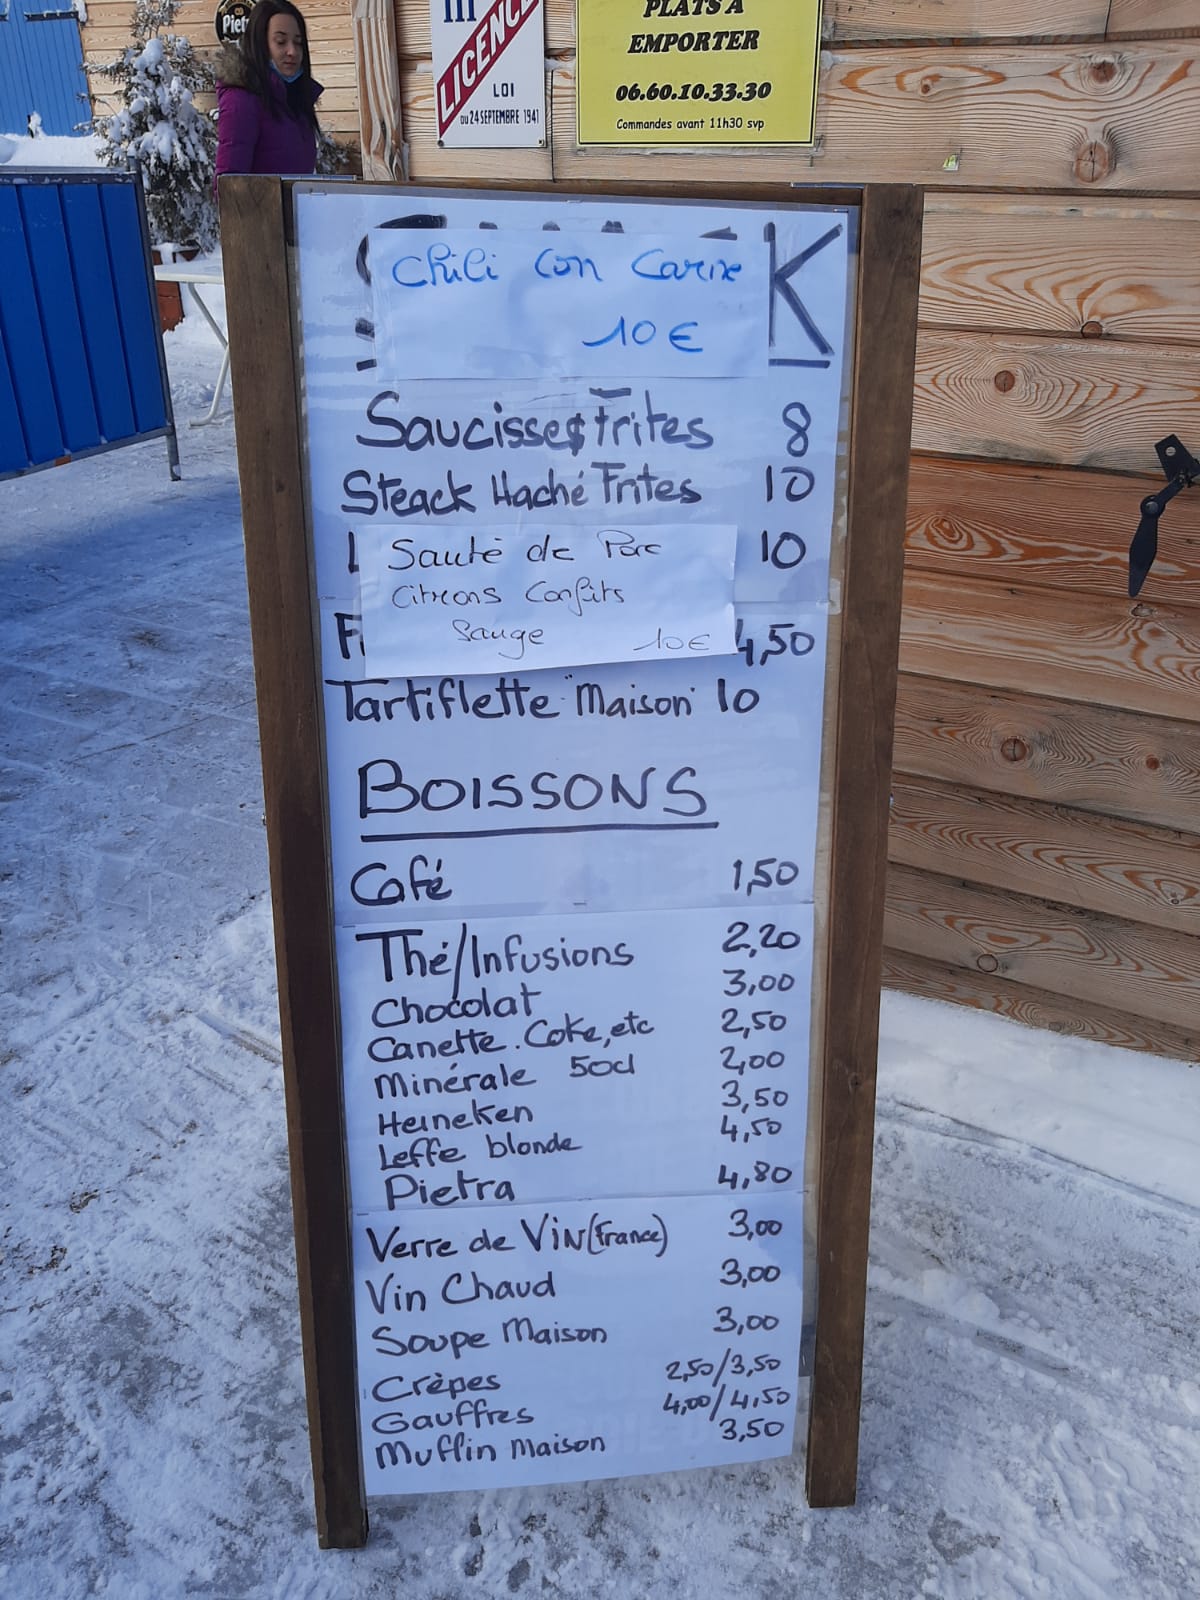 Piet
III
LICENCE
LOI
DU 24 SEPTEMBRE 1941
PLATS A
EMPORTER
06.60.10.33.30
Commandes avant 11h30 svp
Chili Con Carne
10 €
Saucisses Frites 8
Steack Haché Frites 10
10
Sauté de Porc
Citrons Confits
Sauge 10€
4,50
Tartiflette "Maison" 10
BOISSONS
Café 1,50
Thé/Infusions 2,20
Chocolat 3,00
Canette. Coke, etc 2,50
Minérale 50cl 2,00
Heineken 3,50
Leffe blonde 4,50
Pietra 4,80
Verre de Vin (France) 3,00
Vin Chaud 3,00
Soupe Maison 3,00
Crèpes 2,50/3,50
Gauffres 4,00/4,50
Muffin Maison 3,50